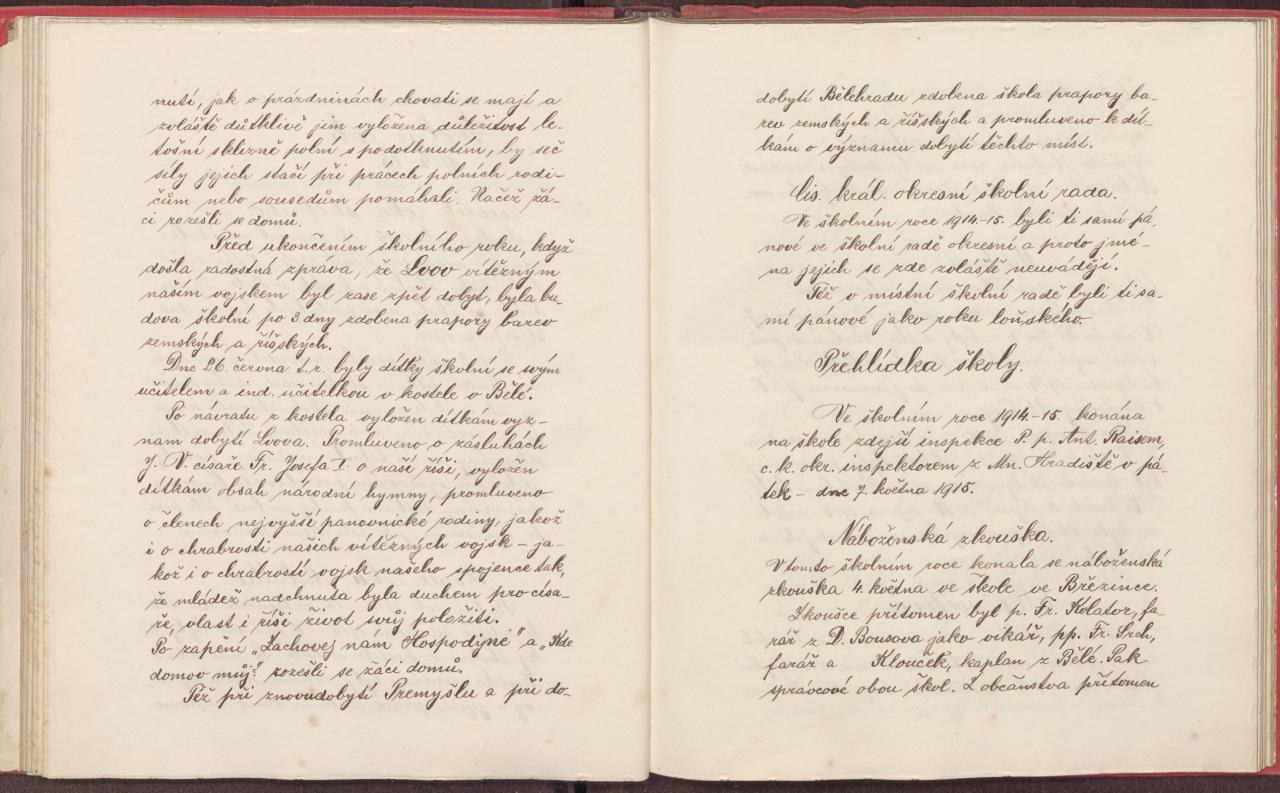 nutí, jak o prázdninách chovati se mají a
zvláště důtklivě jim vyložena důležitost le-
tošní sklizně polní s podotknutím, by seč
síly jejich stačí při prácech polních rodi-
čům nebo sousedům pomáhali. Načež žá-
ci rozešli se domů.
Před ukončením školního roku, když
došla radostná zpráva, že Lvov vítězným
naším vojskem byl zase zpět dobyt, byla bu-
dova školní po 3 dny zdobena prapory barev
zemských a říšských.
Dne 26. června t. r. byly dítky školní se svým
učitelem a ind. učitelkou v kostele v Bělé.
Po návratu z kostela vyložen dítkám výz-
nam dobytí Lvova. Promluveno o zásluhách
J. V. císaře Fr. Josefa I. o naší říši, vyložen
dítkám obsah národní hymny, promluveno
o členech nejvyšší panovnické rodiny, jakož
i o chrabrosti našich vítězných vojsk – ja-
kož i o chrabrosti vojsk našeho spojence tak,
že mládež nadchnuta byla duchem pro císa-
ře, vlast i říši život svůj položiti.
Po zapění „Zachovej nám Hospodine" a „Kde
domov můj?" rozešli se žáci domů.
Též při znovudobytí Přemyšlu a při do-
dobytí Bělehradu zdobena škola prapory ba-
rev zemských a říšských a promluveno k dít-
kám o významu dobytí těchto míst.
Cis. král. okresní školní rada.
Ve školním roce 1914.-15. byli ti samí pá-
nové ve školní radě okresní a proto jmé-
na jejich se zde zvláště neuvádějí.
Též v místní školní radě byli ti sa-
mí pánové jako roku loňského.
Přehlídka školy.
Ve školním roce 1914.-15. konána
na škole zdejší inspekce P. p. Ant. Raisem,
c. k. okr. inspektorem z Mn. Hradiště v pá-
tek – dne 7. května 1915.
Náboženská zkouška.
V tomto školním roce konala se náboženská
zkouška 4. května ve škole ve Březince.
Zkoušce přítomen byl p. Fr. Kolator, fa-
rář z D. Bousova jako vikář, pp. Fr. Srch,
farář a Klouček, kaplan z Bělé. Pak
správcové obou škol. Z občanstva přítomen